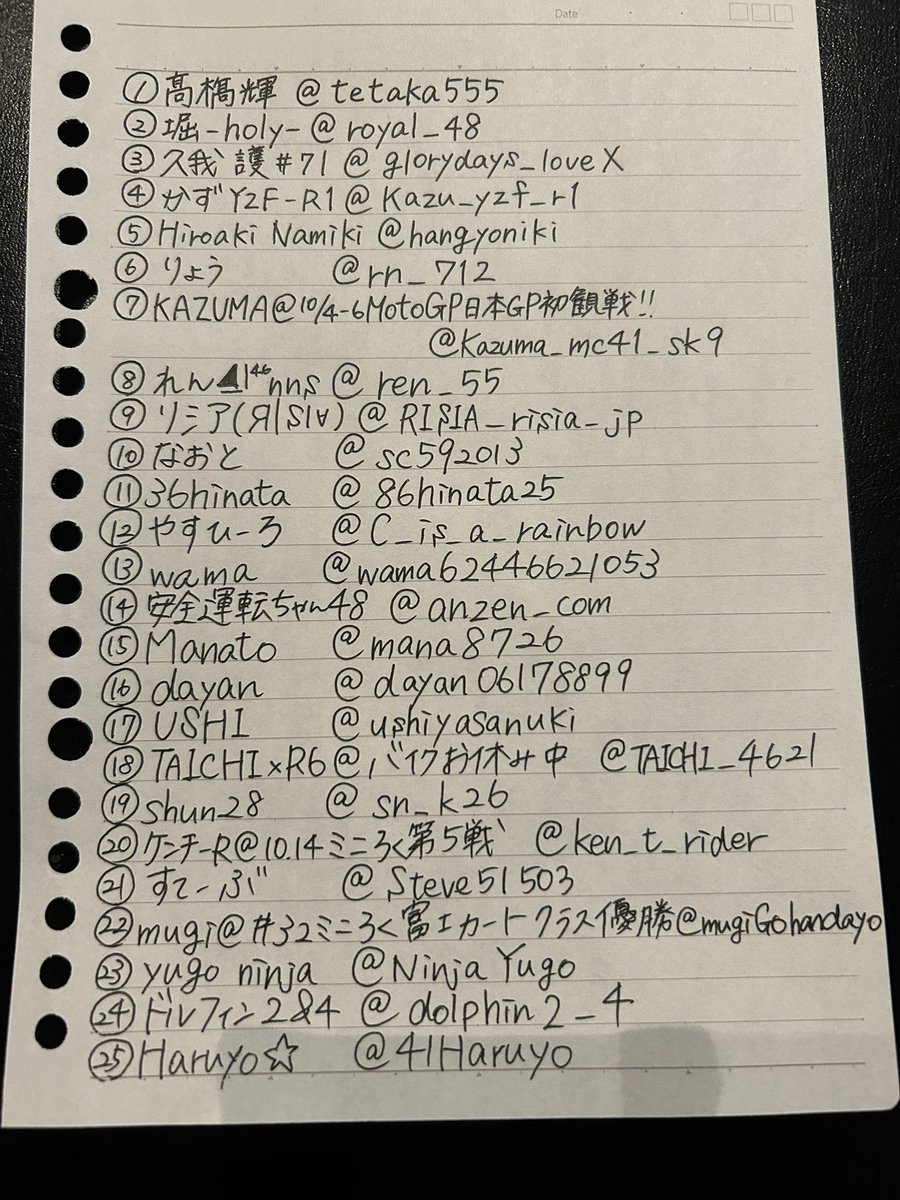 Date
① 髙橋輝 @tetaka555
② 堀-holy- @royal_48
③ 久我 護#71 @glorydays_loveX
④ かずYZF-R1 @Kazu_yzf_r1
⑤ Hiroaki Namiki @hangyoniki
⑥ りょう @rn_712
⑦ KAZUMA@10/4-6MotoGP日本GP初観戦!!
@Kazuma_mc41_sk9
⑧ れん 46 nns @ren_55
⑨ リミア(Я|S|∀) @RISIA_risia_jp
⑩ なおと @sc592013
⑪ 36hinata @86hinata25
⑫ やすひーろ @C_is_a_rainbow
⑬ wama @wama62446621053
⑭ 安全運転ちゃん48 @anzen_com
⑮ Manato @mana8726
⑯ dayan @dayan06178899
⑰ USHI @ushiyasanuki
⑱ TAICHI×R6@バイクお休み中 @TAICHI_4621
⑲ shun28 @sn_k26
⑳ ケンチーR@10.14ミニろく第5戦 @ken_t_rider
㉑ すてーぶ @Steve51503
㉒ mugi@#32ミニろく富士カートクラス優勝@mugiGohandayo
㉓ yugo ninja @NinjaYugo
㉔ ドルフィン2&4 @dolphin2_4
㉕ Haruyo☆ @41Haruyo